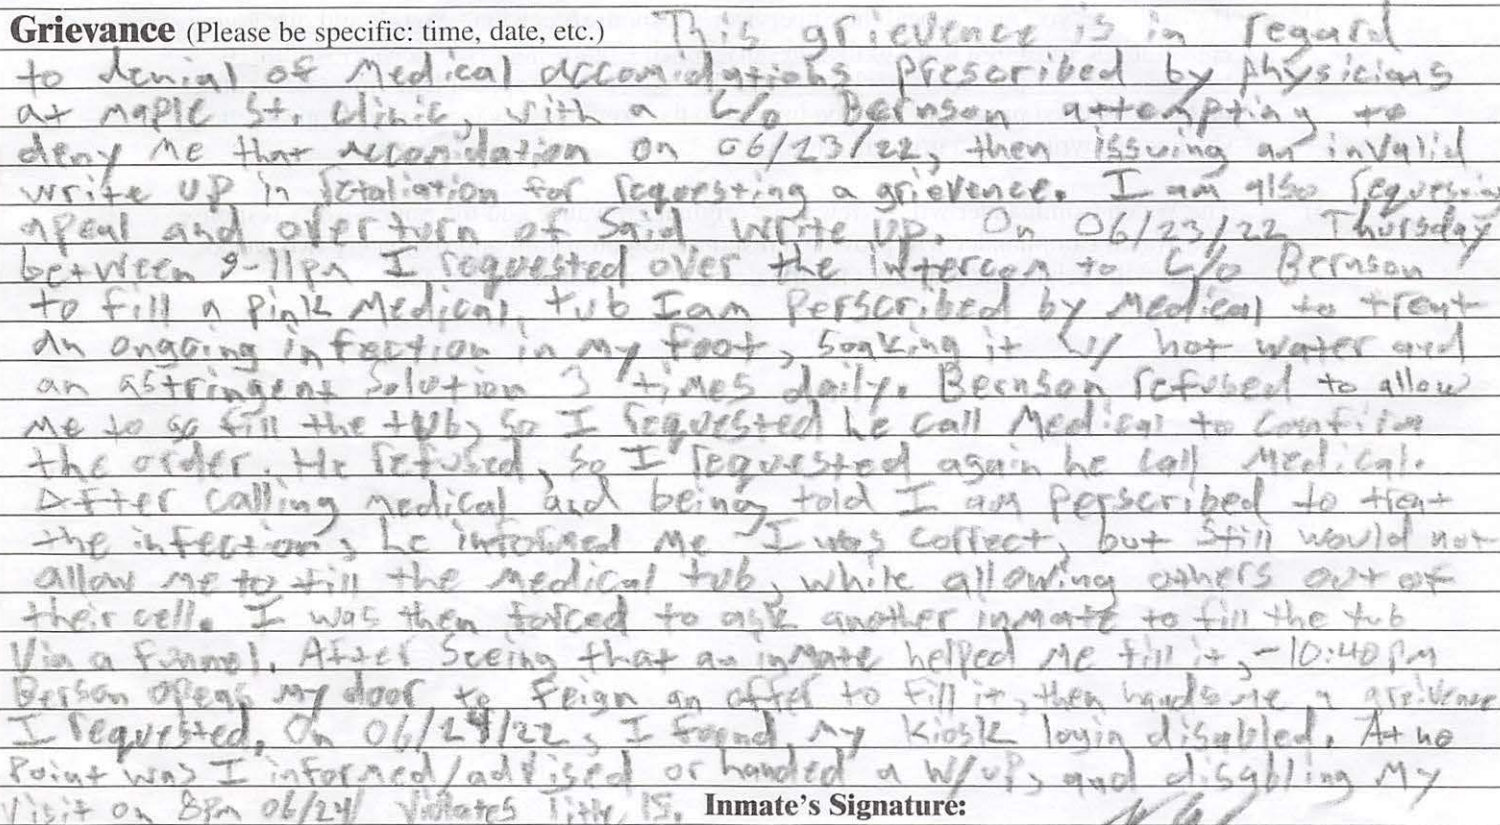 Grievance (Please be specific: time, date, etc.) This grievence is in regard
to denial of Medical accomidations prescribed by physicians
at Maple St. clinic, with a C/o Bernson attempting to
deny me that accomidation on 06/23/22, then issuing an invalid
write up in retaliation for requesting a grievence. I am also requesting
apeal and overturn of said write up. On 06/23/22 Thursday
between 9-11pm I requested over the intercom to C/o Bernson
to fill a pink Medical tub I am perscribed by Medical to treat
an ongoing infection in my foot, soaking it w/ hot water and
an astringent solution 3 times daily. Bernson refused to allow
me to go fill the tub, so I requested he call Medical to confirm
the order. He refused, so I requested again he call Medical.
After calling medical and being told I am perscribed to treat
the infection, he informed me I was correct, but still would not
allow me to fill the medical tub, while allowing others out of
their cell. I was then forced to ask another inmate to fill the tub
Via a funnel. After seeing that an inmate helped me fill it, ~10:40pm
Berson opens my door to feign an offer to fill it, then hands me a greivence
I requested. On 06/24/22, I found my kiosk login disabled. At no
point was I informed/advised or handed a w/up, and disabling my
visit on 8pm 06/24 violates Title 15. Inmate's Signature: